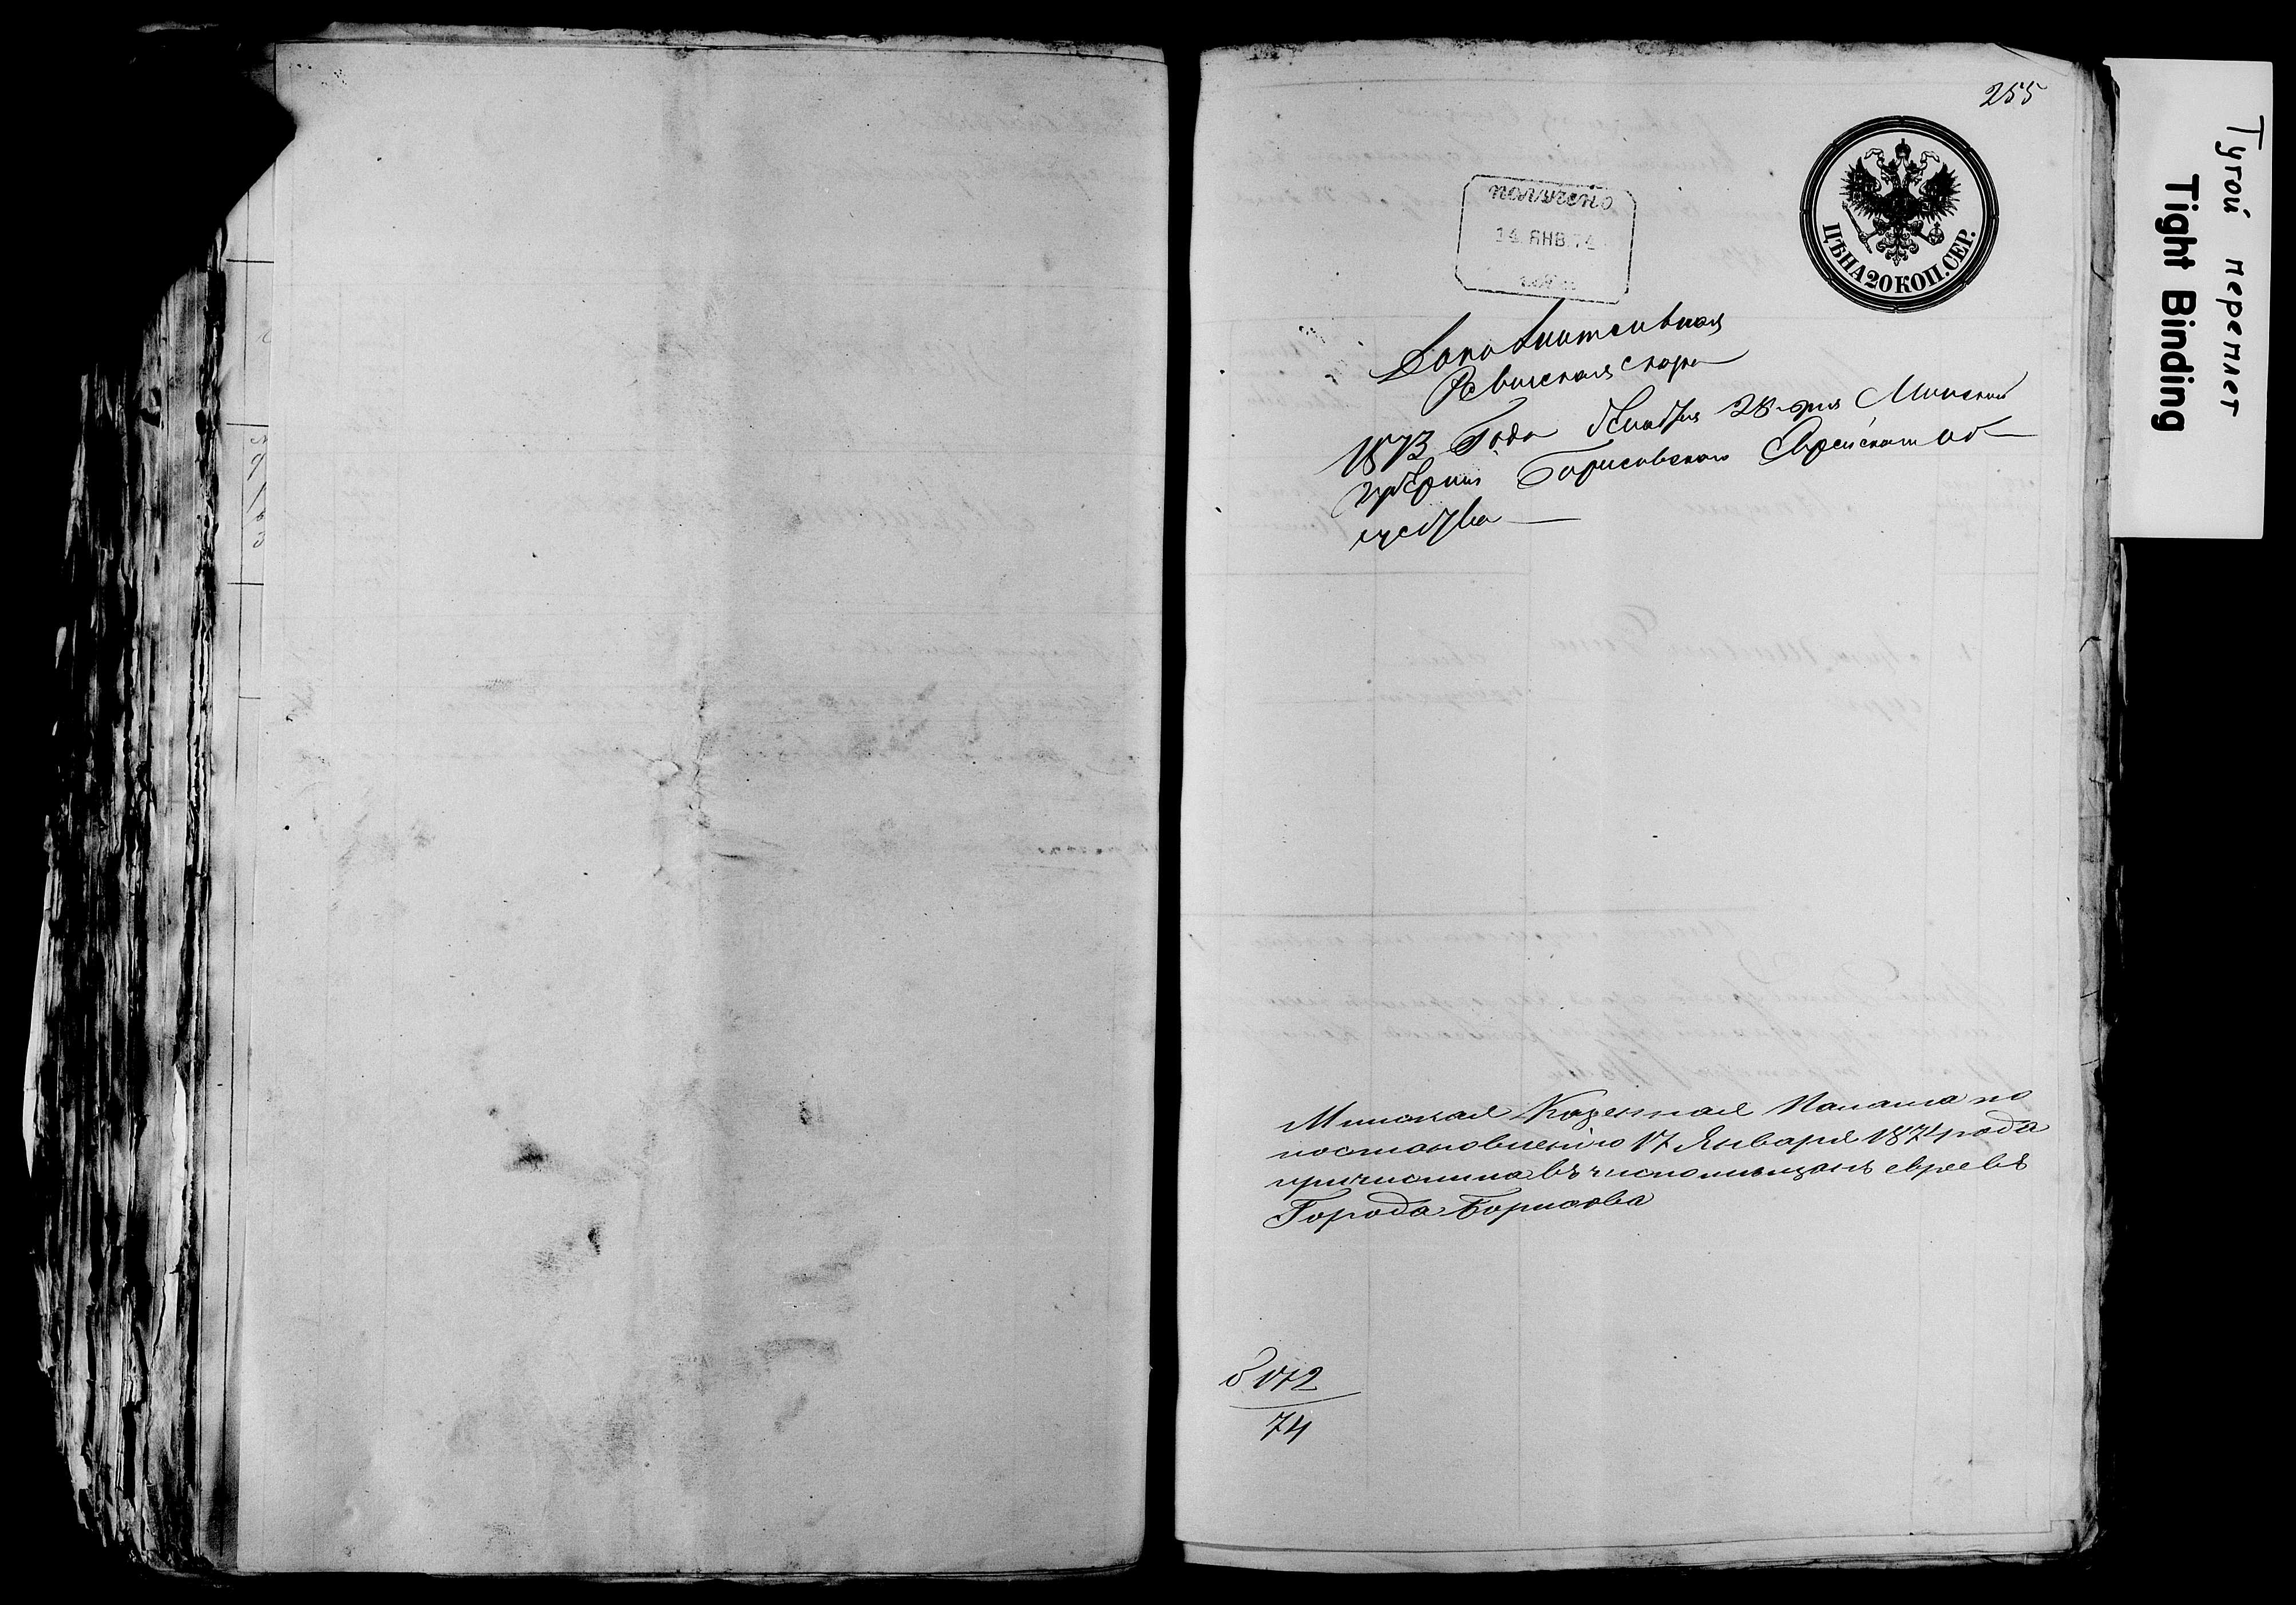 255
ЦѢНА 20 КОП. СЕР.
ПОЛУЧЕНО
14 ЯНВ. 74
Дополнительная
Ревизская сказка
1873 Года Декабря 28 дня Минской
Губернии Борисовскаго Еврейскаго Об
щества
Минская Казенная Палата по
постановленію 17 Января 1874 года
причислила въ число мѣщанъ евреевъ
Города Борисова
172
74
Тугой переплет
Tight Binding